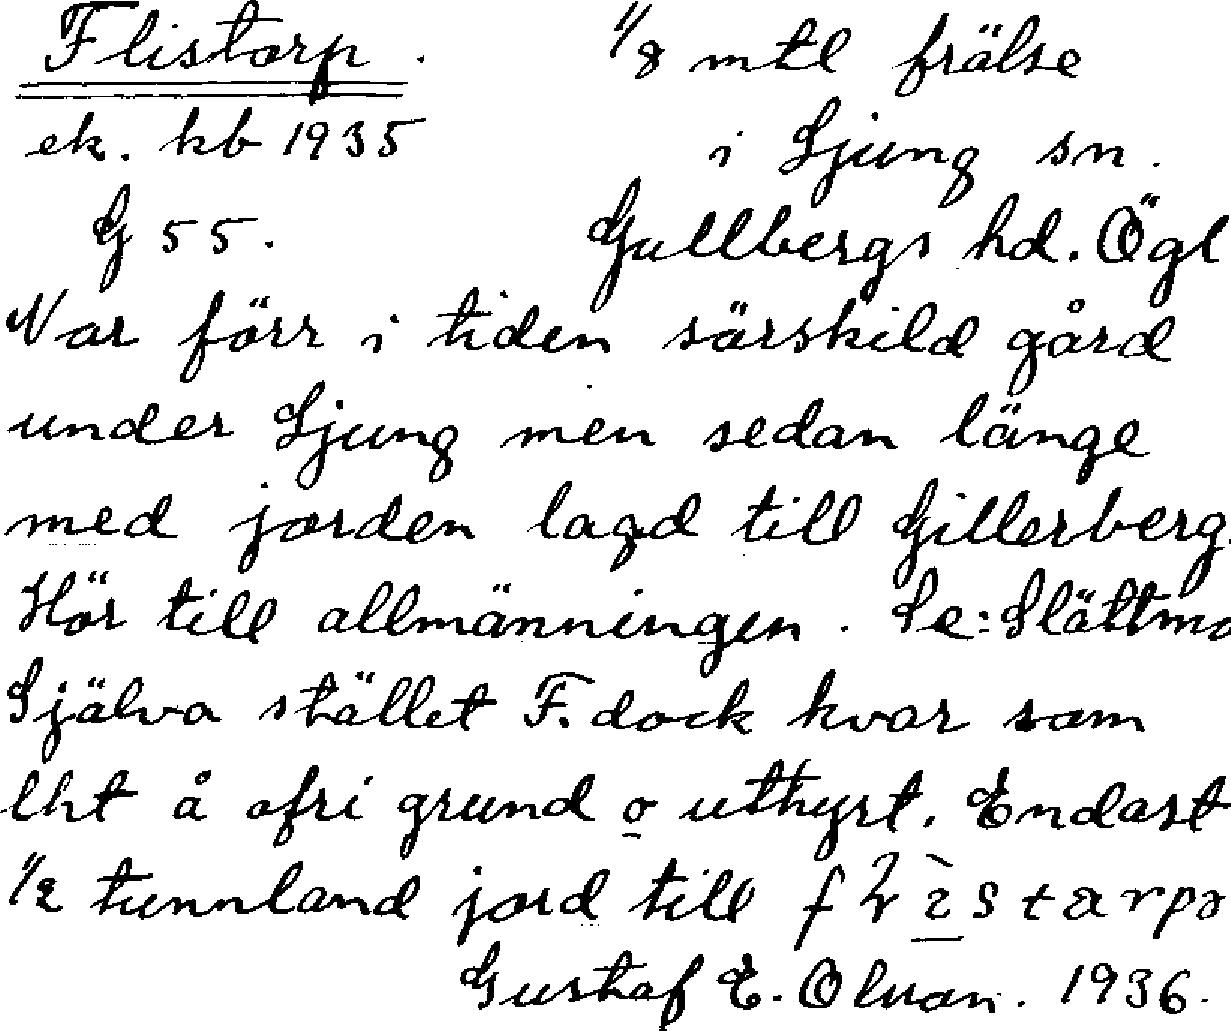 Flistorp. 1/8 mtl frälse
ek. kb 1935 i Ljung sn.
G 55. Gullbergs hd. Ögl
Var förr i tiden särskild gård
under Ljung men sedan länge
med jorden lagd till Gillerberg.
Hör till allmänningen. Se: Slättmo
Själva stället F. dock kvar som
lht å ofri grund o uthyrt. Endast
1/2 tunnland jord till
Gustaf E. Olvan. 1936.